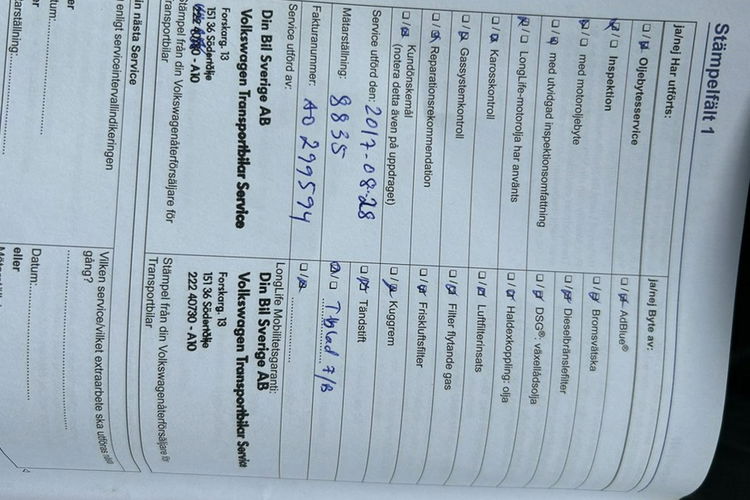 Stämpelfält 1
ja/nej Har utförts:
Oljebytesservice
Inspektion
med motoroljebyte
med utvidgad inspektionsomfattning
LongLife-motorolja har använts
Karosskontroll
Gassystemkontroll
Reparationsrekommendation
Kundönskemål
(notera detta även på uppdraget)
Service utförd den: 2017-08-28
Mätarställning: 8835
Fakturanummer: AO 299594
Service utförd av:
Din Bil Sverige AB
Volkswagen Transportbilar Service
Forskarg. 13
151 36 Södertälje
222 40730 - A10
Stämpel från din Volkswagenåterförsäljare för
Transportbilar
ja/nej Byte av:
AdBlue®
Bromsvätska
Dieselbränslefilter
DSG®: växellådsolja
Haldexkoppling: olja
Luftfilterinsats
Filter flytande gas
Friskluftsfilter
Kuggrem
Tändstift
LongLife Mobilitetsgaranti:
Din Bil Sverige AB
Volkswagen Transportbilar Service
Forskarg. 13
151 36 Södertälje
222 40730 - A10
Stämpel från din Volkswagenåterförsäljare för
Transportbilar
in nästa Service
enligt serviceintervallindikeringen
tum:
er
tarställning:
Vilken service/vilket extraarbete ska utföras
gång?
Datum:
eller